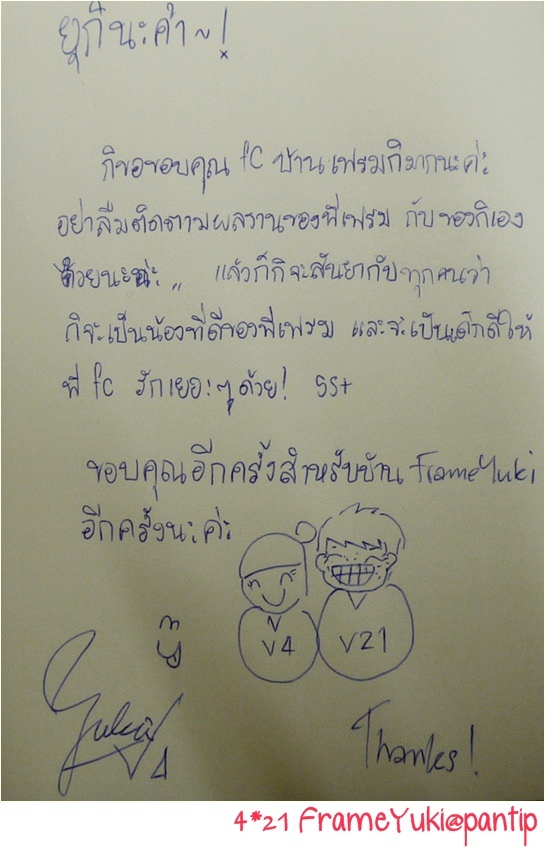 ยูกินะค่า~!
กิขอขอบคุณ fC บ้านเฟรมกิมากนะค่ะ
อย่าลืมติดตามผลงานของพี่เฟรม กับของกิเอง
ด้วยนะน่ะ,, แล้วก็กิจะสัญยากับทุกคนว่า
กิจะเป็นน้องที่ดีของพี่เฟรม และจะเป็นเด็กดีให้
พี่ fC รักเยอะๆด้วย! 55+
ขอบคุณอีกครั้งสำหรับบ้าน FrameYuki
อีกครั้งนะค่ะ
V4 V21
Yuki V4
Thanks!
4*21 FrameYuki@pantip